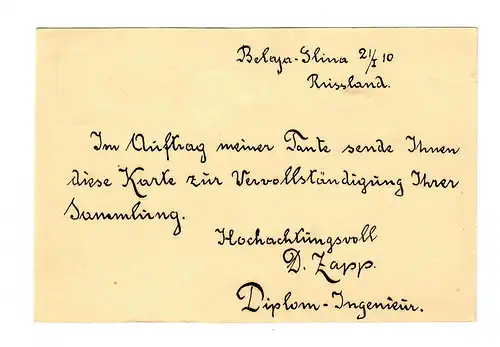 Belaja-Glina 21/I 10
Russland.
Im Auftrag meiner Tante sende Ihnen
diese Karte zur Vervollständigung Ihrer
Sammlung.
Hochachtungsvoll
D. Zapp.
Diplom-Ingenieur.